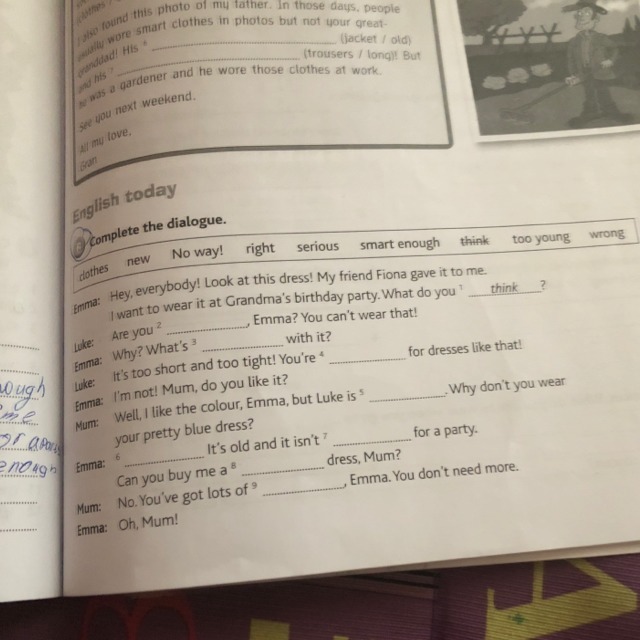 clothes
I also found this photo of my father. In those days, people
usually wore smart clothes in photos but not your great-
granddad! His ⁶ (jacket / old)
and his ⁷ (trousers / long)! But
he was a gardener and he wore those clothes at work.
See you next weekend.
All my love,
Gran
English today
Complete the dialogue.
clothes new No way! right serious smart enough think too young wrong
Emma: Hey, everybody! Look at this dress! My friend Fiona gave it to me.
I want to wear it at Grandma's birthday party. What do you ¹ think ?
Luke: Are you ² , Emma? You can't wear that!
Emma: Why? What's ³ with it?
Luke: It's too short and too tight! You're ⁴ for dresses like that!
Emma: I'm not! Mum, do you like it?
Mum: Well, I like the colour, Emma, but Luke is ⁵ . Why don't you wear
your pretty blue dress?
Emma: ⁶ It's old and it isn't ⁷ for a party.
Can you buy me a ⁸ dress, Mum?
Mum: No. You've got lots of ⁹ , Emma. You don't need more.
Emma: Oh, Mum!
ough
me
enough